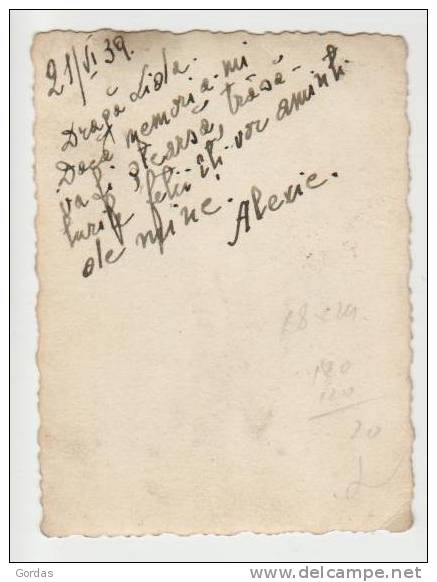 21/VI 39.
Dragă Liola.
Dacă memoria-mi
va fi ștearsă, trăsă-
turile feții îți vor aminti
de mine.
Alexie.
18 cm.
120
20
Gordas
www.delcampe.net